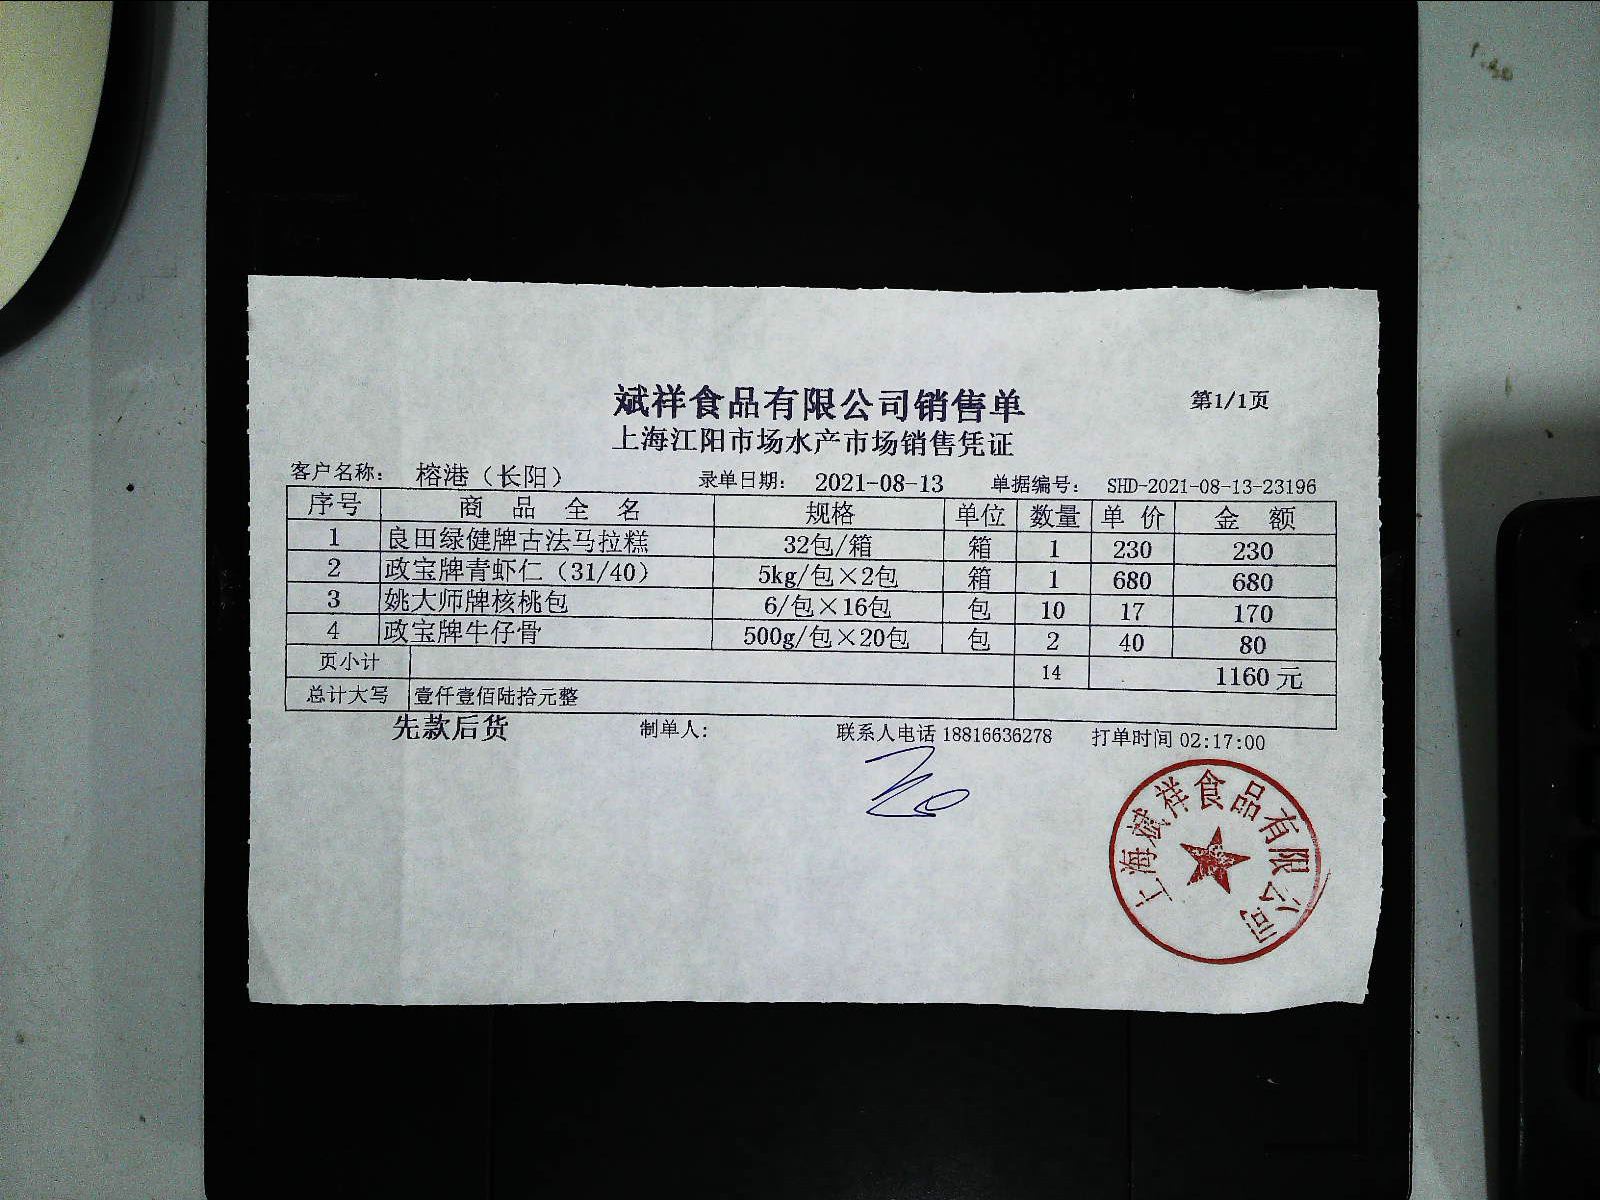 斌祥食品有限公司销售单 第1/1页
上海江阳市场水产市场销售凭证
客户名称: 榕港（长阳） 录单日期: 2021-08-13 单据编号: SHD-2021-08-13-23196
序号 商品全名 规格 单位 数量 单价 金额
1 良田绿健牌古法马拉糕 32包/箱 箱 1 230 230
2 政宝牌青虾仁（31/40） 5kg/包×2包 箱 1 680 680
3 姚大师牌核桃包 6/包×16包 包 10 17 170
4 政宝牌牛仔骨 500g/包×20包 包 2 40 80
页小计 14 1160元
总计大写 壹仟壹佰陆拾元整
先款后货 制单人: 联系人电话 18816636278 打单时间 02:17:00
上海斌祥食品有限公司